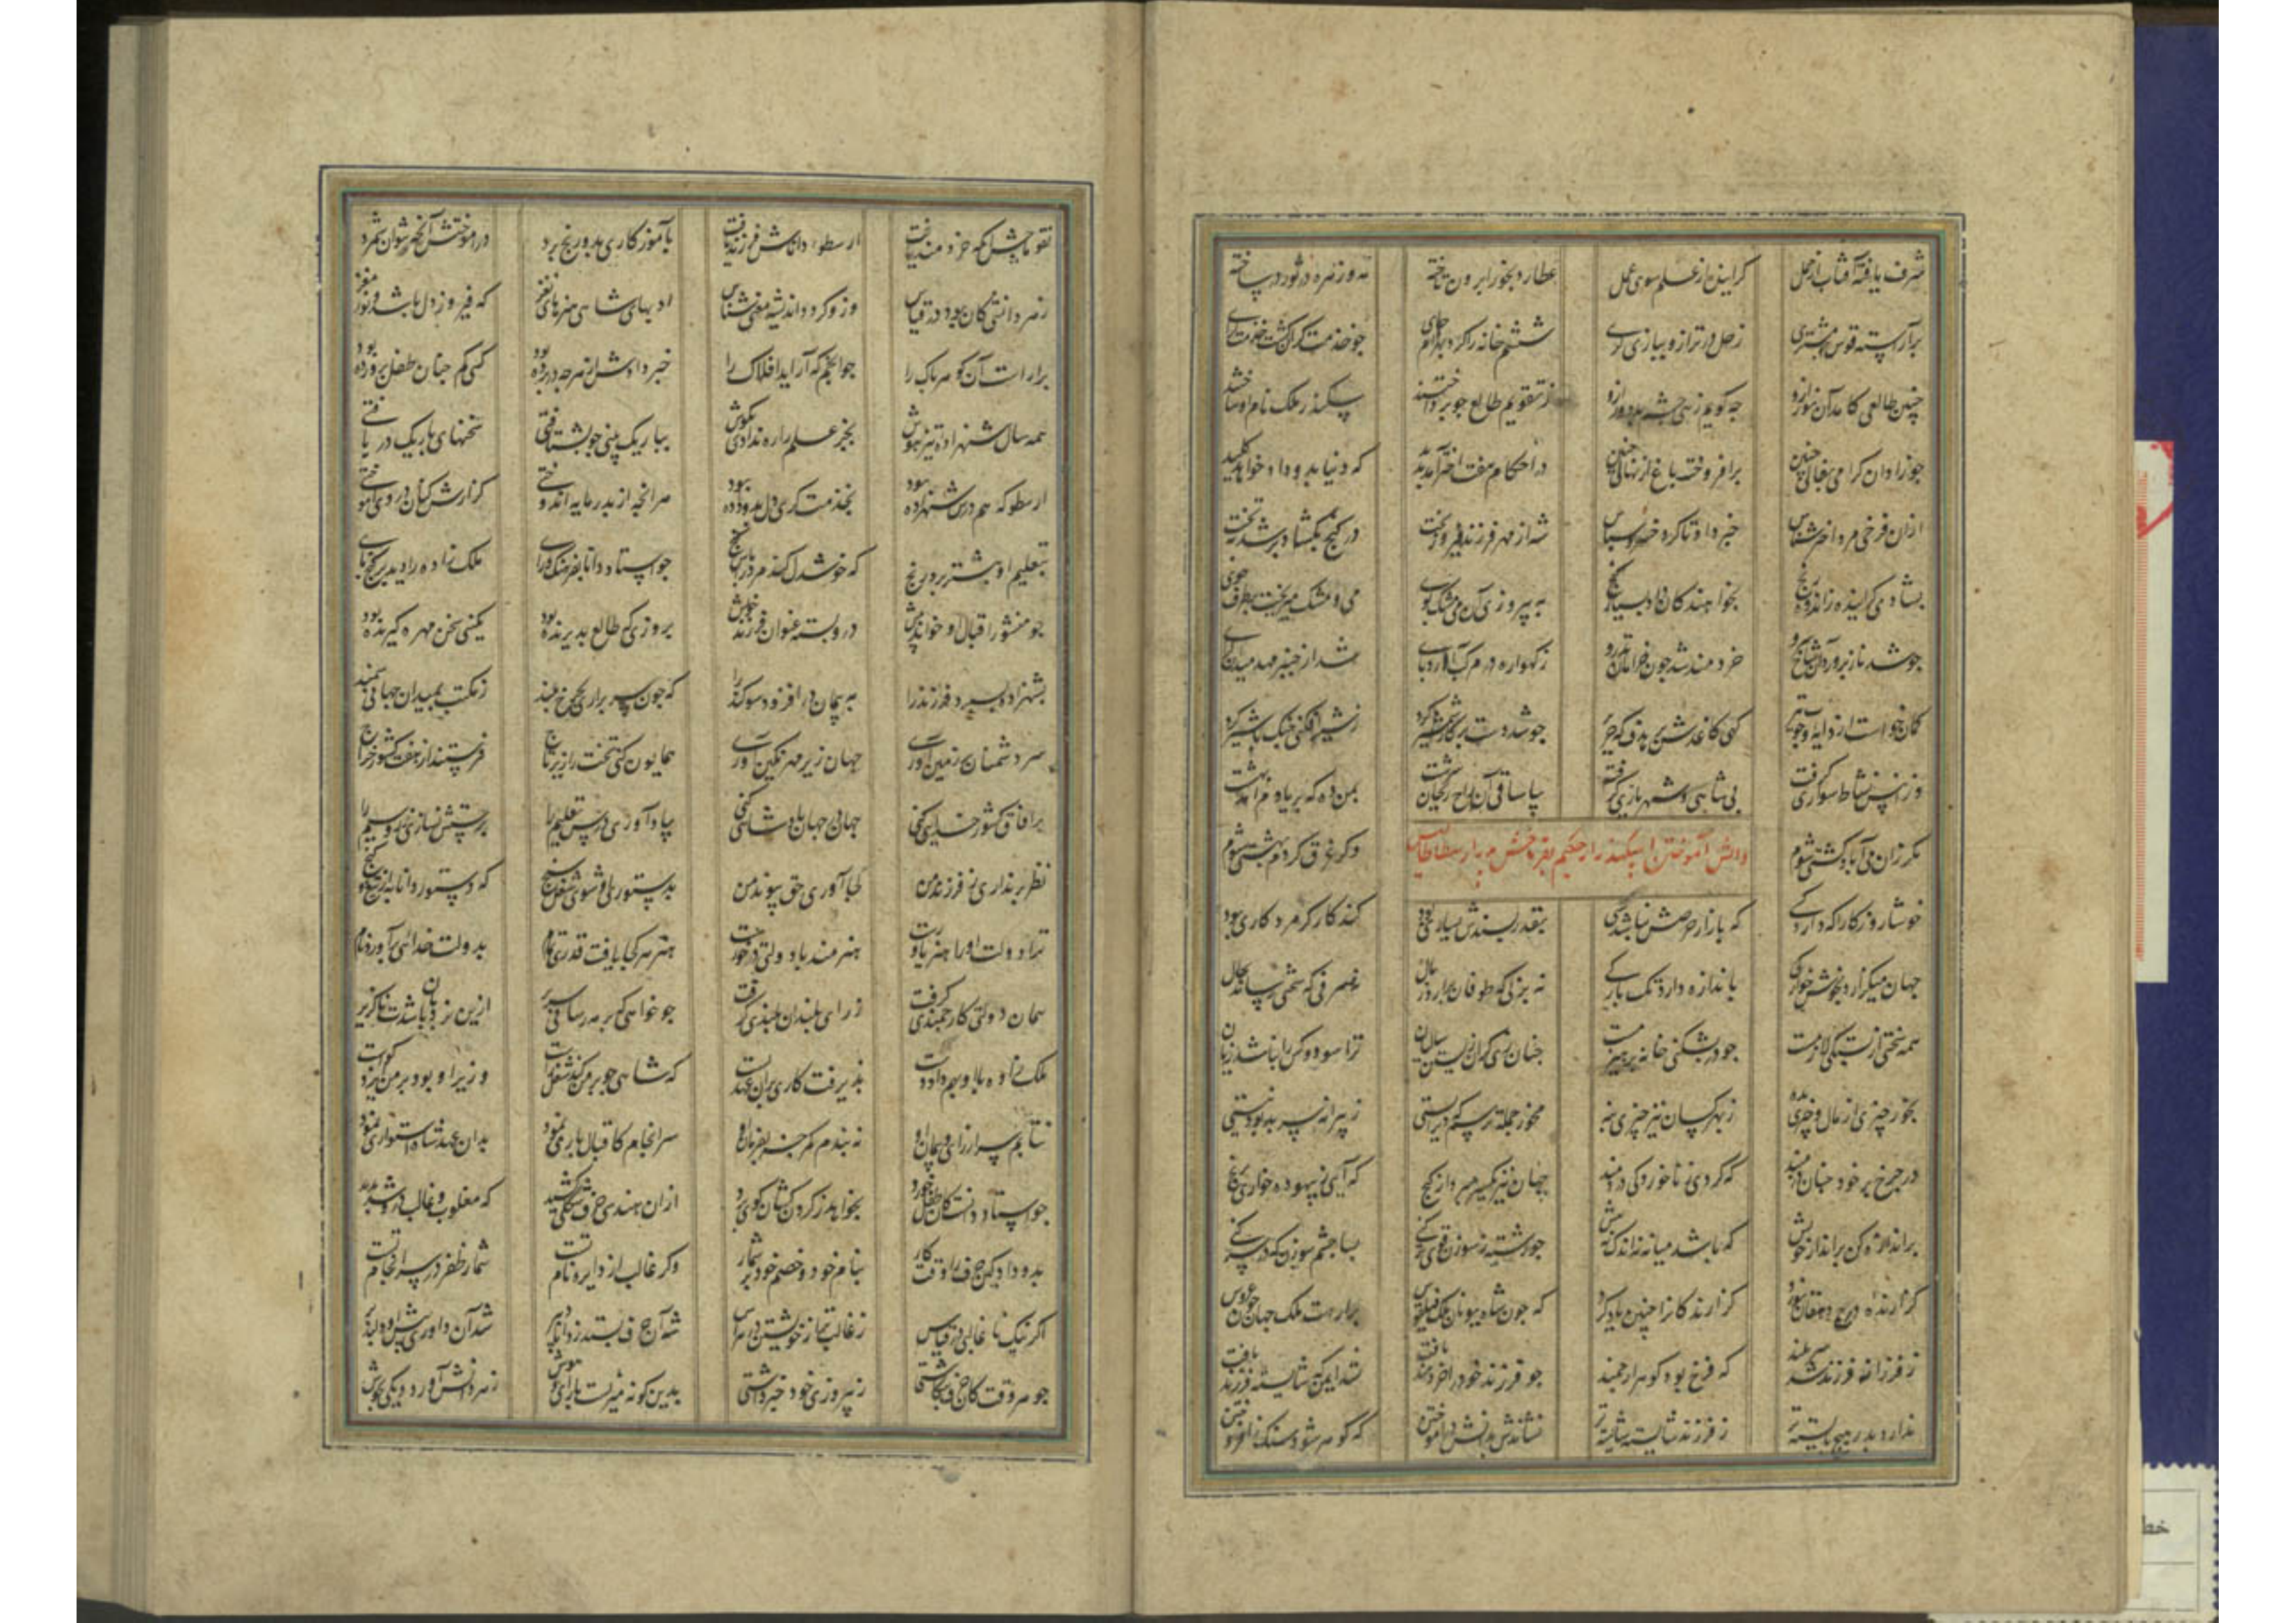 شرف یافته آفتاب از حمل گراینده از علم سوی عمل عطارد بجوزا برون تاخته مه و زهره در ثور در ساخته
برآراسته قوس مشتری زحل در ترازو ببازی گری ششم خانه را کرد بهرام جای جو خدمت گران گشت خدمت نمای
چنین طالعی کامد آن نور ازو چه گویم زهی چشم بد دور ازو ز تقویم طالع جو برداختند سکندر ملک نام او ساختند
جو زاد ان گرامی بفالی چنین برافروخت باغ از نهالی چنین در احکام هفت اختر آمد بدید که دنیا بدو داد خواهد کلید
ازان فرخی مرد اختر شناس خبر داد تا کرد خسرو سپاس شه از مهر فرزند فیروز بخت در گنج بگشاد و بر شد بتخت
بشادی گراینده ز اندوه و رنج بخواهندکان داد بسیار گنج به پیروزی آن می مشک بوی می و مشک میریخت بر طرف جوی
جو شد ناز پرورد آن شاخ سرو خردمند شد جون خرامان تذرو ز کهواره در مرکب آورد پای شد از جنبر مهد میدان گرای
کمان خواست از دایه و جوبه تیر گهی کاغذش بد هدف گه حریر جو شد کار شمشیر کرد ز شیر افکنی جنگ با شیر کرد
وزان پس نشاط سواری گرفت پی شاهی و شهریاری گرفت بیا ساقی آن راح ریحان سرشت بمن ده که بر یاد آمد بهشت
مگر زان می آباد کشتی شوم وگر غرق گردم بهشتی شوم
دانش آموختن اسکندر از حکیم نقوماجش پدر ارسطاطالیس
خوشا روزگارا که دارد کسی که بازار حرصش نباشد بسی بقدر پسندش یساری بود کند کار کر مرد کاری بود
جهان میگذارد بخوش خوارگی باندازه دارد تک بارگی نه بذلی که طوفان برآرد ز مال نه صرفی که سختی رساند بحال
همه سختی از بستگی لازمست جو در بشکنی خانه پر هیزمست جنان زی کزان زیستن سالیان ترا سود و کس را نباشد زیان
بخور چیزی از مال و چیزی بده ز بهر کسان نیز چیزی بنه مخور جمله ترسم که دیر ایستی ز پیرانه سر بد بود نیستی
در خرج بر خود جنان در مبند که گردی ز ناخوردگی دردمند چنان نیز یکسر مپرداز گنج که آیی ز بیهوده خواری برنج
براندازه کن بر انداز خویش که باشد میانه نه اندک نه بیش جو رشته ز سوزن قوی تر کنی بسا چشم سوزن که در سر کنی
گزارنده درج دهقان نورد گزارندگان را چنین یاد کرد که جون شاه یونان ملک فیلقوس برآراست ملک جهان جون عروس
ز فرزانه فرزند شد سر بلند که فرخ بود گوهر ارجمند جو فرزند خود را خردمند یافت شد ایمن که شایسته فرزند یافت
ندارد پدر هیچ بایسته تر ز فرزند شایسته شایسته تر نشاندش بدانش در اموختن که گوهر شود سنگ از افروختن
نقوماجش آنکه خردمند یافت ارسطوی داناش فرزند یافت بآموزکاری بدو رنج برد در اموختش آنچه نتوان شمرد
ادبهای شاهی هنرهای نغز که فیروز دل باشد و نور مغز
برآراست آن گوهر پاک را جو انجم که آراید افلاک را خبر دادش از هرجه در پرده بود کسی کم جنان طفل پرورده بود
همه سال شهزاده تیزهوش بجز علم را ره ندادی بگوش بباریک بینی جو بشتافتی سخنهای باریک دریافتی
ارسطو که هم درس شهزاده بود بخدمت گری دل بدو داده بود هر انجه از پدر مایه اندوختی گزارش کنان در وی آموختی
بتعلیم او بیشتر برد رنج که خوشدل کند مرد را پاس گنج جو استاد دانا بفرهنگ و رای ملک زاده را دید بر گنج پای
جو منشور اقبال او خواند پیش درو بسته عنوان فرزند خویش بروزی که طالع پذیرنده بود نگین سخن مهره گیرنده بود
بشهزاده بسپرد فرزند را به پیمان در افزود سوگند را که جون سر براری بجرخ بلند ز مکتب بمیدان جهانی سمند
سر دشمنان بر زمین آوری جهان زیر مهر نگین آوری همایون کنی تخت را زیر تاج فرستند از هفت کشور خراج
بر افاق کشور خدایی کنی جهان در جهان پادشاهی کنی بیاد آوری درس تعلیم را پرستش نسازی زر و سیم را
نظر بر نداری ز فرزند من بجا آوری حق پیوند من بدستوری او شوی شغل سنج که دستور دانا به از تیغ و گنج
ترا دولت او را هنر یاورست هنرمند با دولتی درخورست هنر هر کجا یافت قدری تمام بدولت خدائی برآورد نام
همان دولتی کارجمندی گرفت ز رای بلندان بلندی گرفت جو خواهی که بر مه رسانی سریر ازین نردبان باشدت ناگزیر
ملک زاده با او بهم داد دست پذیرفت کاری بران عهد بست که شاهی جو بر من کند شغل راست وزیر او بود بر من ایزد گواست
نتابم سر از رای و پیمان او نه بندم کمر جز بفرمان او سرانجام کاقبال یاری نمود بدان عهد شاه استواری نمود
جو استاد دانست کان طفل خورد بخواهد ز گردن کشان گوی برد ازان هندسی حرف شکلی کشید که مغلوب و غالب درو شد پدید
بدو داد کین حرف را وقت کار بنام خود و خصم خود بر شمار وکر غالب از دایره نام تست شمار ظفر در سرانجام تست
شه آن حرف بستد ز دانای پیر شد آن داوری پیش او دلپذیر
جو هر وقت کان حرف بنگاشتی ز پیروزی خود خبر داشتی بدین گونه میزیست با رای و هوش ز هر دانش آورد دیگی بجوش
خط